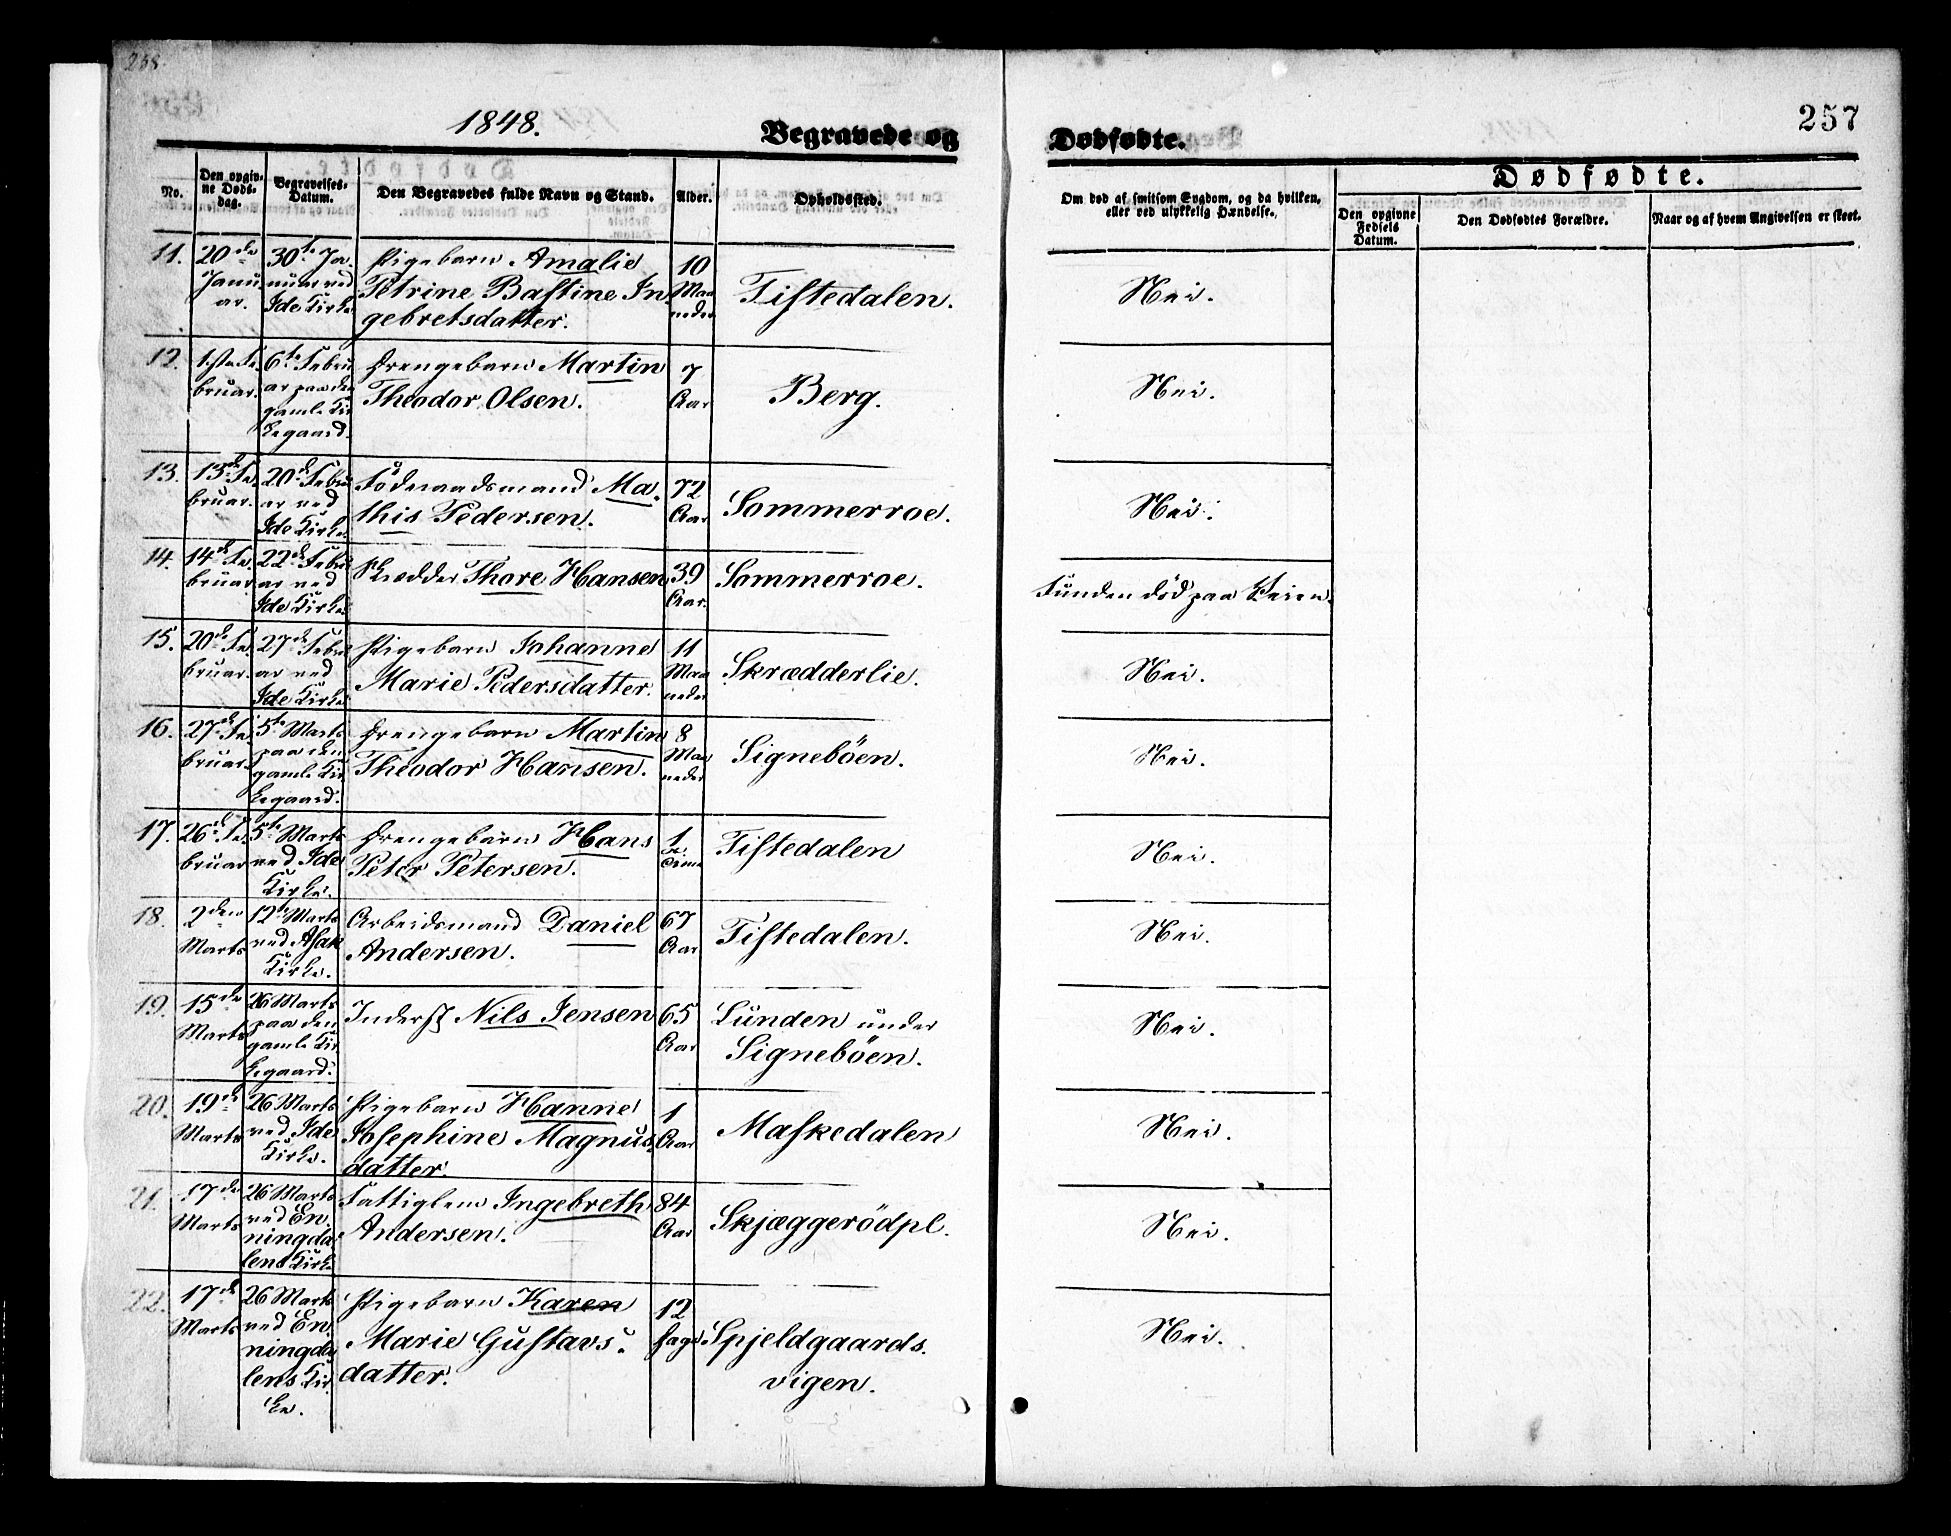 258.
257
1848.
Begravede og
Dødfødte.
No.
Den opgiv-
ne Døds-
dag.
Begravelses-
Datum.
Den Begravedes fulde Navn og Stand.
Alder.
Opholdssted.
Om død af smitsom Sygdom, og da hvilken,
eller ved ulykkelig Hændelse.
Dødfødte.
Den opgivne
Fødsels
Datum.
Den Dødfødtes Forældre.
Naar og af hvem Angivelsen er skeet.
11.
20de
Janu
ar.
30te Ja-
nuar ved
Ide Kirke
Pigebarn Amalie
Petrine Bastine In-
gebretsdatter.
10
Maa
neder
Tistedalen.
Nei.
12.
1ste Fe-
bruar.
6te Febru
ar paa den
gamle Kir
kegaard.
Drengebarn Martin
Theodor Olsen.
7
Aar
Berg.
Nei.
13.
13de Fe-
bruar.
20de Febru
ar ved
Ide Kirke
Föderaadsmand Ma-
this Pedersen.
72
Aar
Sommerroe.
Nei.
14.
14de Fe-
bruar
22de Febru
ar ved
Ide Kirke
Skrædder Thore Hansen
39
Aar.
Sommerroe.
Funden död paa Veien.
15.
20de Fe-
bruar.
27de Febru
ar ved
Ide Kirke
Pigebarn Johanne
Marie Pedersdatter.
11
Maa
neder
Skrædderlie.
Nei.
16.
27de Fe-
bruar.
5te Marts
paa den
gamle Kir
kegaard.
Drengebarn Martin
Theodor Hansen.
8
Maa
neder
Signeböen.
Nei.
17.
26de Fe-
bruar
5te Marts
ved Ide
Kirke.
Drengebarn Hans
Peter Petersen.
Tistedalen
Nei.
18.
2den
Marts
12te Marts
ved Asak
Kirke.
Arbeidsmand Daniel
Andersen.
67
Aar
Tistedalen.
Nei.
19.
15de
Marts
26 Marts
paa den
gamle Kir
kegaard.
Inderst Nils Jensen
65
Aar
Lunden under
Signeböen.
Nei.
20.
19de
Marts
26 Marts
ved Ide
Kirke.
Pigebarn Hanne
Josephine Magnus-
datter.
1
Aar
Maskedalen
Nei.
21.
17de
Marts
26 Marts
ved En-
ningda-
lens Kirke
Fattiglem Ingebreth
Andersen.
84
Aar
Skjæggerödpl.
Nei.
22.
17de
Marts
26 Marts
ved En-
ningda
lens Kir-
ke.
Pigebarn Karen
Marie Gustavs-
datter.
12
Dage
Spjeldgaards-
vigen.
Nei.